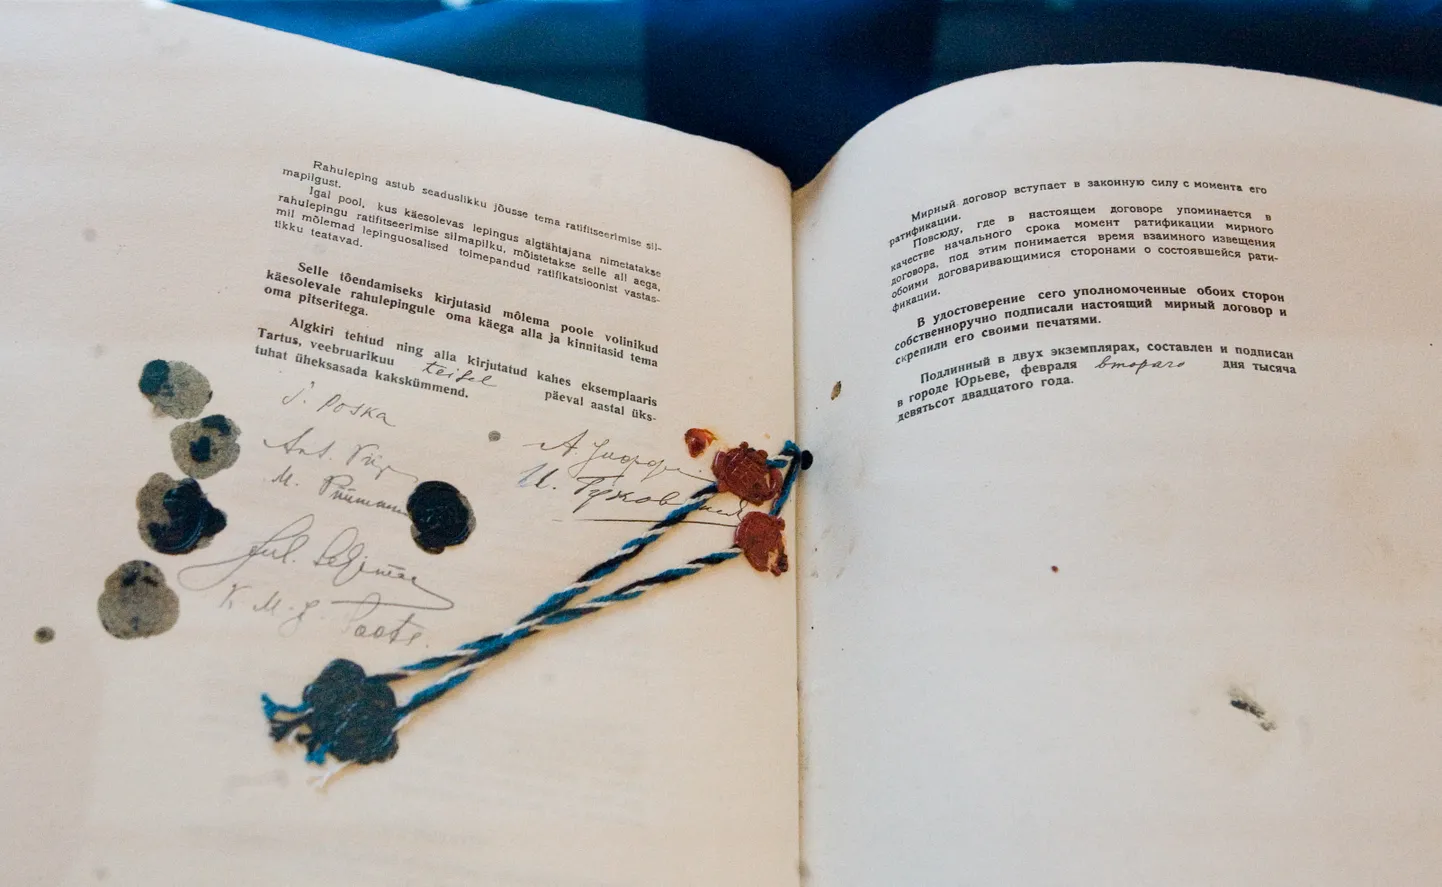 Rahuleping astub seaduslikku jõusse tema ratifitseerimise sil-
mapilgust.
Igal pool, kus käesolevas lepingus algtähtajana nimetatakse
rahulepingu ratifitseerimise silmapilku, mõistetakse selle all aega,
mil mõlemad lepinguosalised toimepandud ratifikatsioonist vastas-
tikku teatavad.
Selle tõendamiseks kirjutasid mõlema poole volinikud
käesolevale rahulepingule oma käega alla ja kinnitasid tema
oma pitseritega.
Algkiri tehtud ning alla kirjutatud kahes eksemplaaris
Tartus, veebruarikuu teisel päeval aastal üks-
tuhat üheksasada kakskümmend.
J. Poska
Ant. Piip
M. Püümann
Jul. Seljamaa
K. M. J. Soots.
А. Иоффе
И. Гуковский
Мирный договор вступает в законную силу с момента его
ратификации.
Повсюду, где в настоящем договоре упоминается в
качестве начального срока момент ратификации мирного
договора, под этим понимается время взаимного извещения
обоими договаривающимися сторонами о состоявшейся рати-
фикации.
В удостоверение сего уполномоченные обоих сторон
собственноручно подписали настоящий мирный договор и
скрепили его своими печатями.
Подлинный в двух экземплярах, составлен и подписан
в городе Юрьеве, февраля второго дня тысяча
девятьсот двадцатого года.